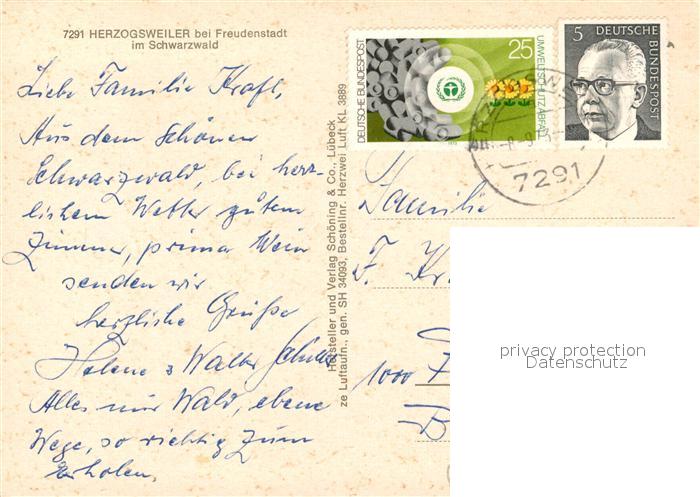 7291 HERZOGSWEILER bei Freudenstadt
im Schwarzwald
Liebe Familie Kraft,
Aus dem schönen
Schwarzwald, bei herr-
lichem Wetter gutem
Zimmer, prima Wein
senden wir
herzliche Grüße
Helene & Walter
Alles nur Wald, ebene
Wege, so richtig zum
Erholen.
Hersteller und Verlag Schöning & Co., Lübeck
ze Luftaufn., gen. SH 34093, Bestellnr. Herzwei Luft KL 3889
DEUTSCHE BUNDESPOST
25
UMWELTSCHUTZ: ABFALL
5
DEUTSCHE
BUNDESPOST
7291
Familie
F. Kr
1000
B
privacy protection
Datenschutz